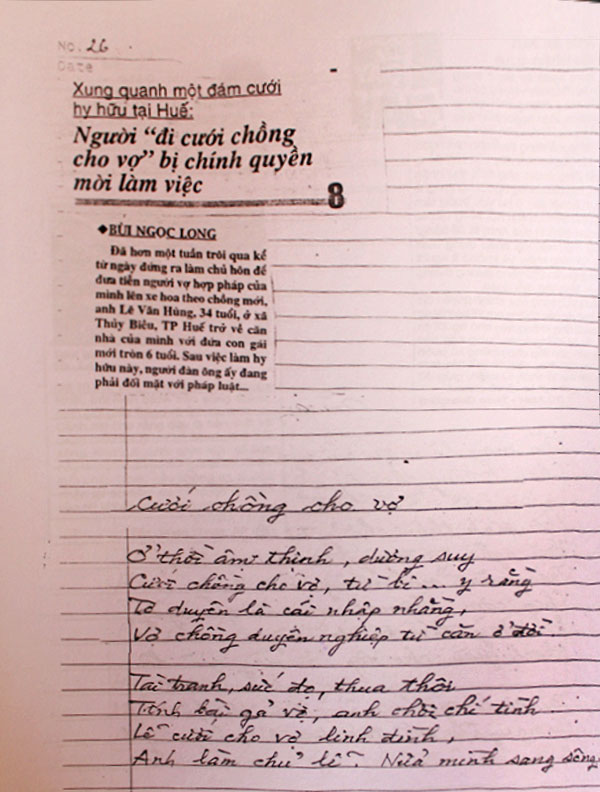 No. 26
Date
Xung quanh một đám cưới
hy hữu tại Huế:
Người "đi cưới chồng
cho vợ" bị chính quyền
mời làm việc
8
◆BÙI NGỌC LONG
Đã hơn một tuần trôi qua kể
từ ngày đứng ra làm chủ hôn để
đưa tiễn người vợ hợp pháp của
mình lên xe hoa theo chồng mới,
anh Lê Văn Hùng, 34 tuổi, ở xã
Thủy Biều, TP Huế trở về căn
nhà của mình với đứa con gái
mới tròn 6 tuổi. Sau việc làm hy
hữu này, người đàn ông ấy đang
phải đối mặt với pháp luật...
Cưới chồng cho vợ
Ở thời âm thịnh, dương suy
Cưới chồng cho vợ, từ bi... y rằng
Tơ duyên là cái nhập nhằng,
Vợ chồng duyên nghiệp từ căn ở đời.
Tài tranh, sức đọ, thua thôi
Tính bài gả vợ, anh chơi chí tình
Lễ cưới cho vợ linh đình,
Anh làm chủ lễ. Nửa mình sang sông